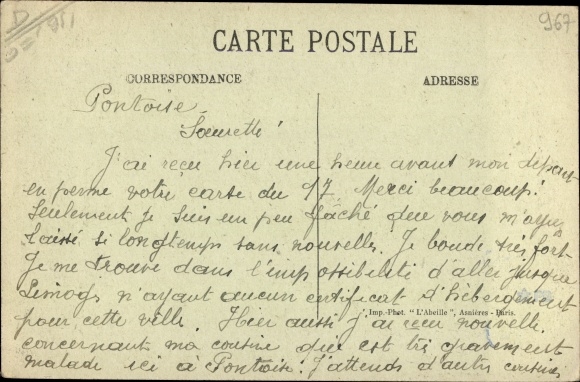 967
CARTE POSTALE
CORRESPONDANCE
ADRESSE
Pontoise
Soeurette
J'ai reçu hier une heure avant mon départ
en perme votre carte du 9/7 Merci beaucoup!
Seulement je suis un peu fâché que vous m'ayez
laissé si longtemps sans nouvelles. Je boude très fort
Je me trouve dans l'impossibilité d'aller jusque
Limoges n'ayant aucun certificat d'hébergement
Imp.-Phot. "L'Abeille", Asnières - Paris.
pour cette ville. Hier aussi j'ai reçu nouvelle
concernant ma cousine qui est très gravement
malade ici à Pontoise. J'attends d'autres cousines